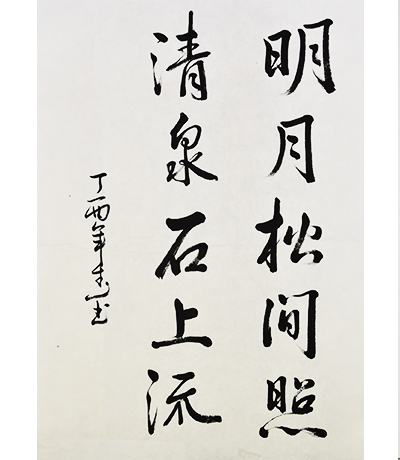 明月松间照
清泉石上流
丁酉年